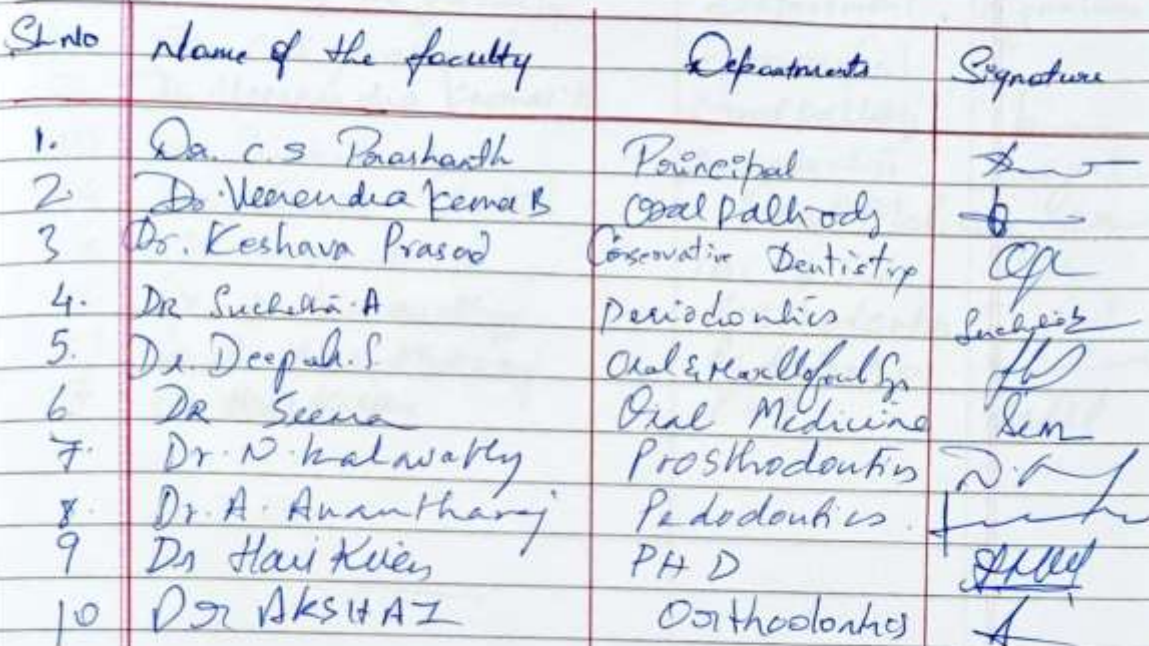 Sl.No Name of the faculty Departments Signature
1. Dr. C.S Prashanth Principal
2. Dr. Veerendra Kumar B Oral Pathody
3 Dr. Keshava Prasad Conservative Dentistry
4. DR Suchetha.A Periodontics Suchetha
5. Dr. Deepak.S. Oral & Maxillofacial Sgr
6 DR Seema Oral Medicine Sem
7. Dr. N. Kalavathy Prosthodontics
8. Dr. A. Anantharaj Pedodontics.
9 Dr Hari PHD
10 Dr AKSHAI Orthodontics